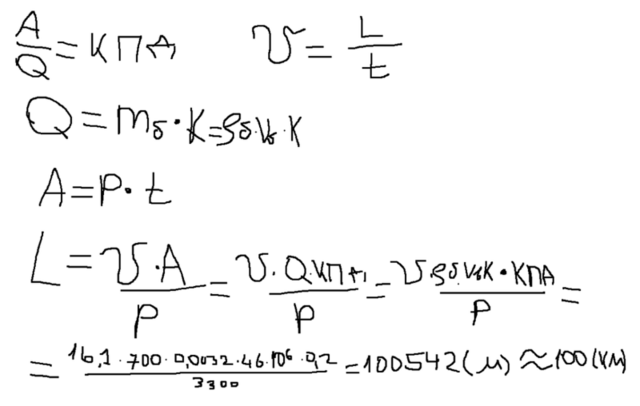 A/Q = КПД   υ = L/t
Q = mб · K = ρб · Vб · K
A = P · t
L = υ · A / P = υ · Q · КПД / P = υ · ρб · Vб · K · КПД / P =
= 16,1 · 700 · 0,0032 · 46 · 10⁶ · 0,2 / 3300 = 100542 (м) ≈ 100 (км)